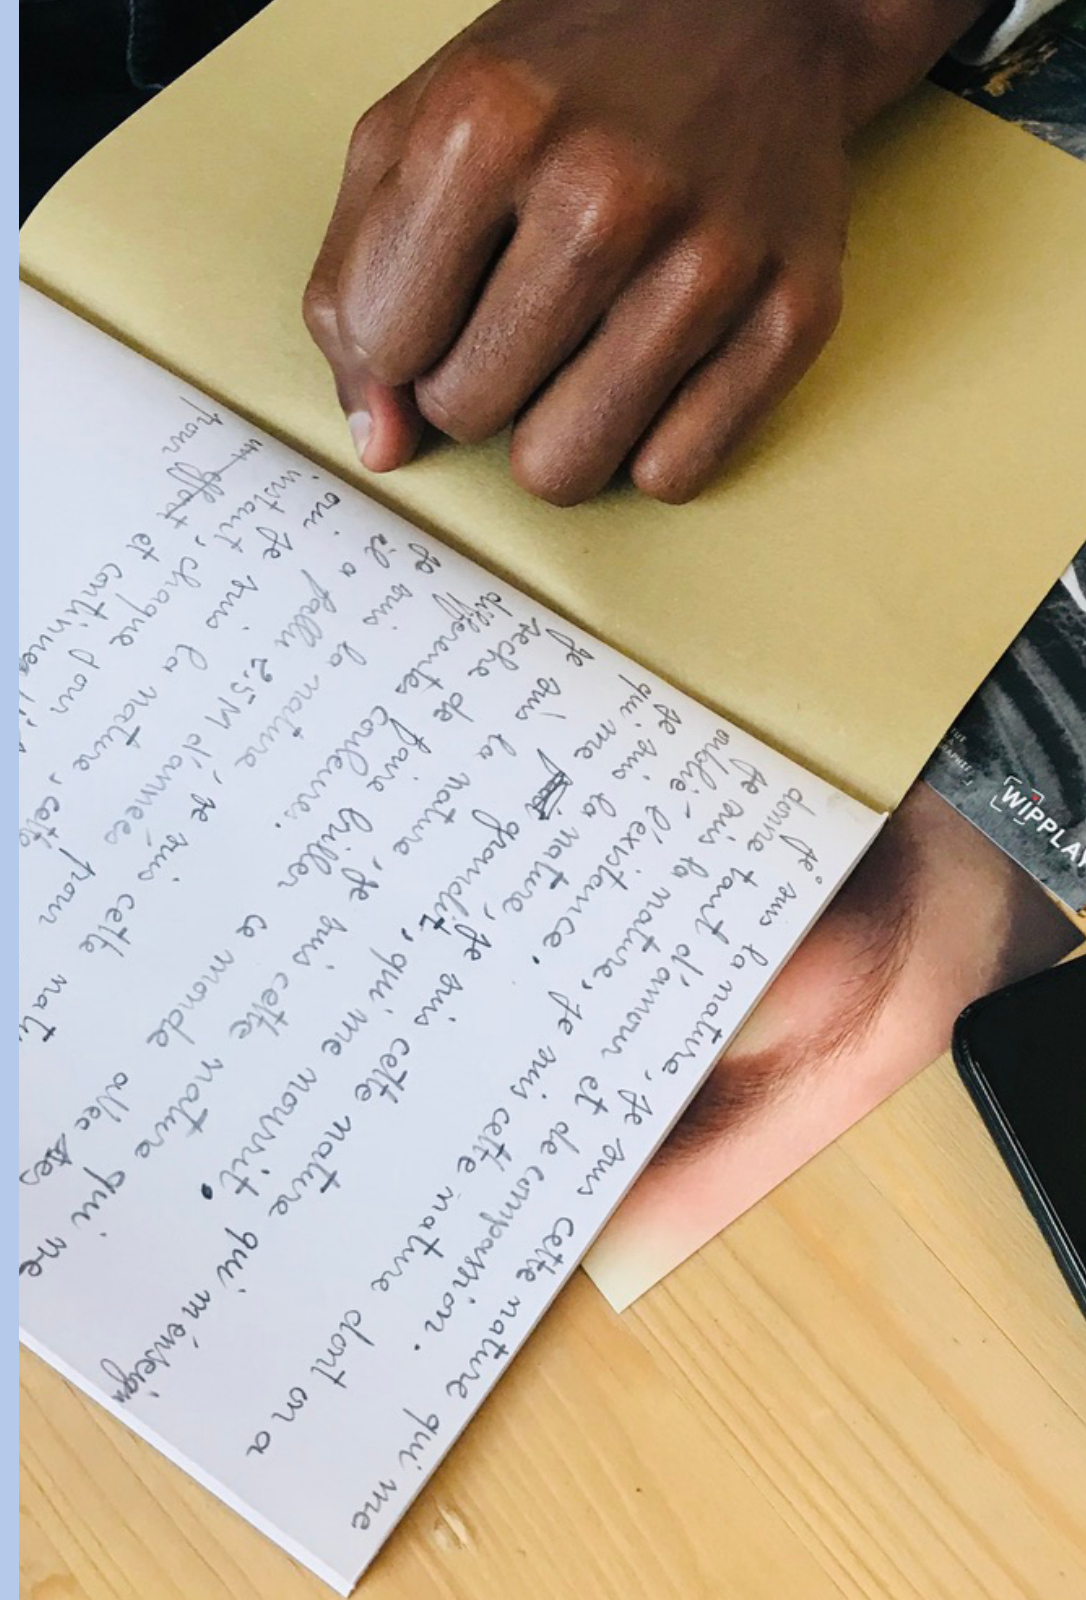 je suis la nature, je suis cette nature qui me
donne tant d'amour et de compassion.
Je suis la nature, je suis cette nature dont on a
oublié l'existance.
je suis la nature, je suis cette nature qui m'enseign
qui me grandit, qui me nourrit.
Je suis la nature, je suis cette nature qui me
de faire briller ce monde avec ses
differentes couleures.
je suis la nature je suis cette natu
il a fallu 2.5M d'années pour
oui je suis la nature, cette
instant, chaque jour
un effort et continuer
pour
WIPPLA